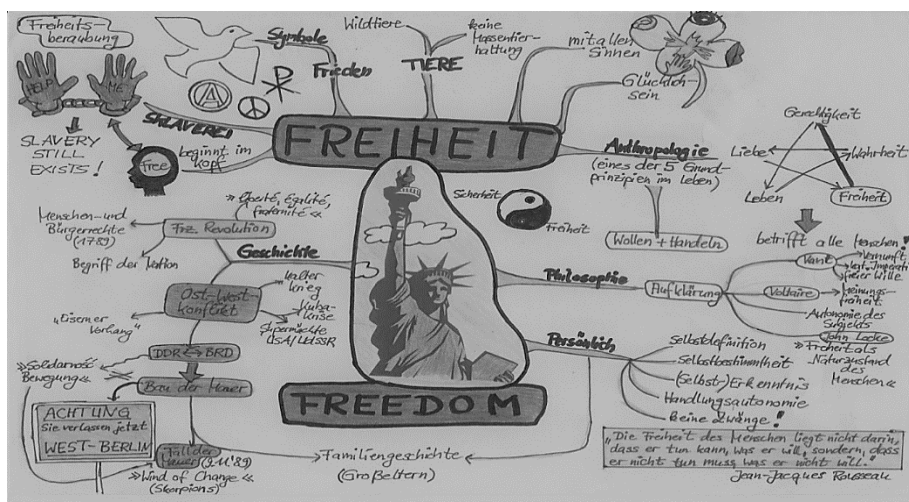 Freiheits-
beraubung
HELP
ME
SLAVERY
STILL
EXISTS!
SKLAVEREI
Free
beginnt im
Kopf
Symbole
Frieden
Wildtiere
TIERE
keine
Massentier-
haltung
mit allen
Sinnen
Glücklich-
sein
FREIHEIT
Anthropologie
(eines der 5 Grund-
prinzipien im Leben)
Wollen + Handeln
Gerechtigkeit
Liebe
Wahrheit
Leben
Freiheit
betrifft alle Menschen!
Sicherheit
Freiheit
Geschichte
Frz. Revolution
»Liberté, Égalité,
fraternité«
Menschen- und
Bürgerrechte
(1789)
Begriff der Nation
Ost-West-
konflikt
Kalter
Krieg
Kuba-
krise
Supermächte
USA/UdSSR
"Eiserner
Vorhang"
DDR BRD
»Solidarność
Bewegung«
Bau der Mauer
ACHTUNG
Sie verlassen jetzt
WEST-BERLIN
Fall der
Mauer (9.11.'89)
»Wind of Change«
(Skorpions)
Familiengeschichte
(Großeltern)
FREEDOM
Philosophie
Aufklärung
Kant
Vernunft
kat. Imperativ
freier Wille
Voltaire
Meinungs-
freiheit
Autonomie des
Subjekts
John Locke
»Freiheit als
Naturzustand
des
Menschen«
Persönlich
Selbstdefinition
Selbstbestimmtheit
(Selbst-)Erkenntnis
Handlungsautonomie
keine Zwänge!
„Die Freiheit des Menschen liegt nicht darin,
dass er tun kann, was er will, sondern, dass
er nicht tun muss, was er nicht will."
Jean-Jacques Rousseau